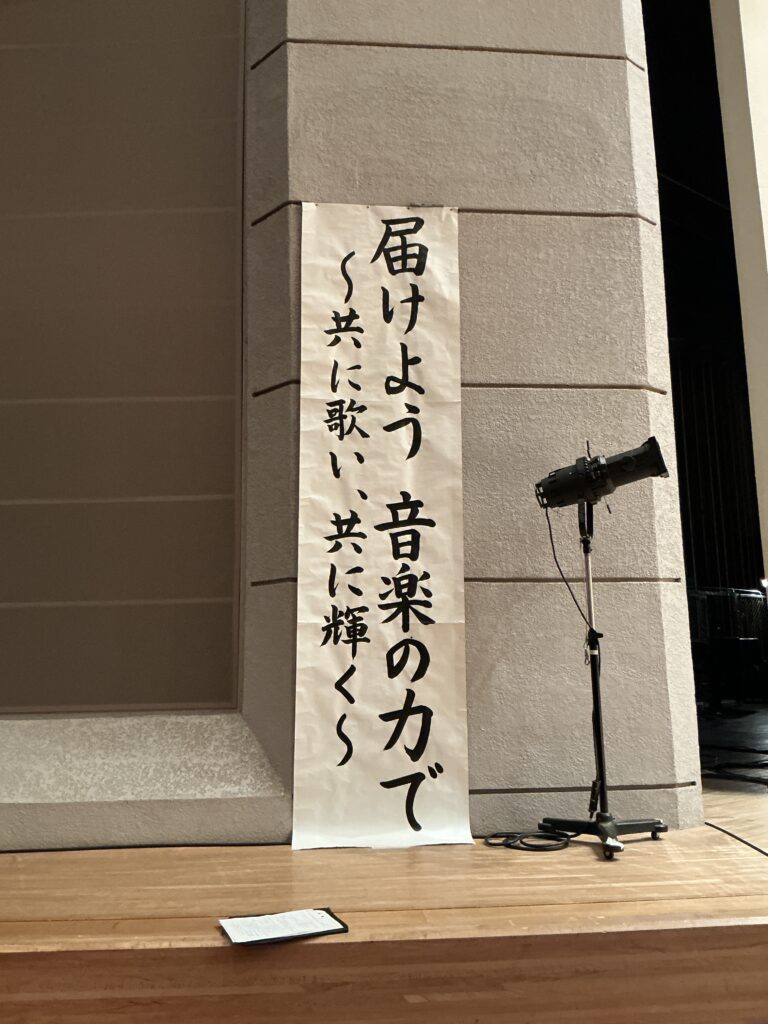 届けよう 音楽の力で
〜共に歌い、共に輝く〜